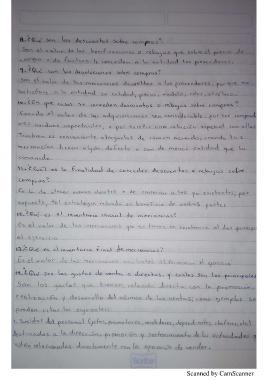 8.¿Qué son los descuentos sobre compras?
Son el valor de las bonificaciones o rebajas que sobre el precio de
compra de facturas le conceden a la entidad los proveedores.
9.¿Qué son las devoluciones sobre compras?
Son el valor de las mercancías devueltas a los proveedores, por que no
satisfacen a la entidad su calidad, precio, modelo, color, etcétera.
10.¿En que casos se conceden descuentos o rebajas sobre compras?
Cuando el valor de las adquisiciones sea considerable, por ser comprad
una relación especial con ellos
También es conveniente otorgarlos de común acuerdo, cuando las
mercancías tienen algún defecto o son de menor calidad que la
convenida.
11.¿Cuál es la finalidad de conceder descuentos o rebajas sobre
compras?
Es la de atraer nuevos clientes o de conservar a los ya existentes, por
supuesto, tal estrategia redunda en beneficio de ambas partes.
12.¿Qué es el inventario inicial de mercancías?
Es el valor de las mercancías que se tienen en existencia al dar principio
al ejercicio.
13.¿Qué es el inventario final de mercancías?
Es el valor de las mercancías existentes al terminar el ejercicio
14.¿Qué son los gastos de venta o directos, y cuáles son los principales
Son los gastos que tienen relación directa con la promoción,
realización y desarrollo del volumen de las ventas; como ejemplos se
pueden citar los siguientes:
1. Sueldos del personal (jefes, promotores, vendedores, dependientes, choferes, etc)
destinados a la dirección, promoción y sostenimiento de las actividades q
estén relacionadas directamente con la operación de vender.
Scribe
Scanned by CamScanner